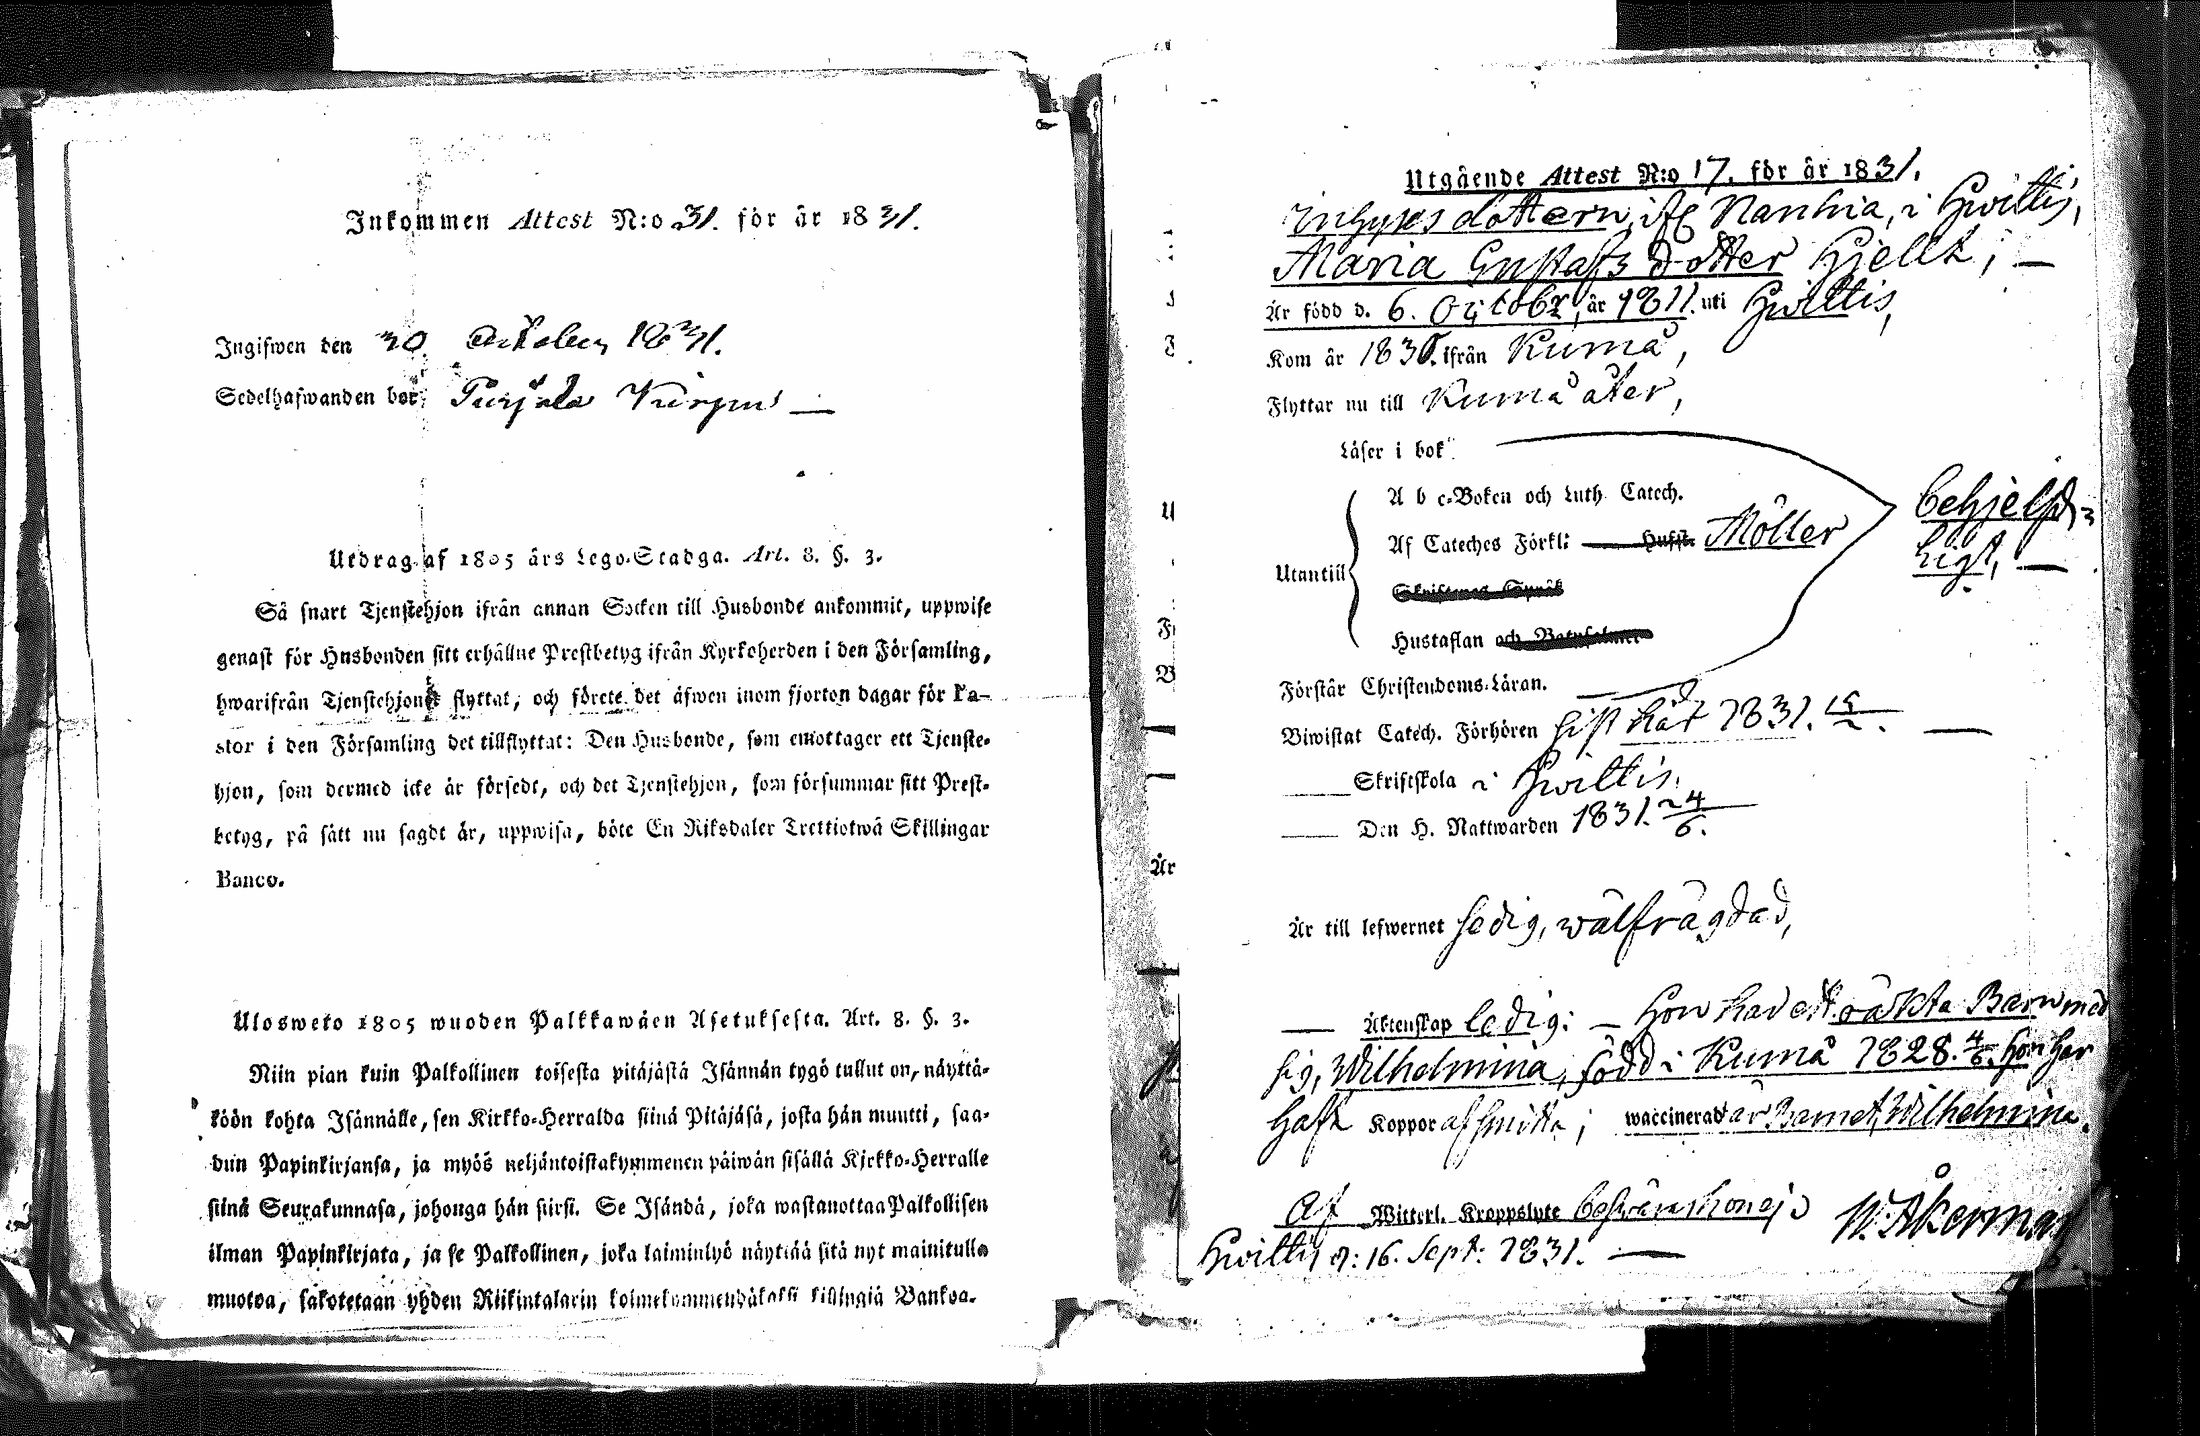 Inkommen Attest N:o 31. för år 1831.
Ingifwen den 30 October 1831.
Sedelhafwanden bor
Utdrag af 1805 års Lego-Stadga. Art. 8. §. 3.
Så snart Tjenstehjon ifrån annan Socken till Husbonde ankommit, uppwise
genast för Husbonden sitt erhållne Prestbetyg ifrån Kyrkoherden i den Församling,
hwarifrån Tjenstehjonet flyttat, och förete det äfwen inom fjorton dagar för Pa-
stor i den Församling det tillflyttat: Den Husbonde, som emottager ett Tjenste-
hjon, som dermed icke är försedt, och det Tjenstehjon, som försummar sitt Prest-
betyg, på sätt nu sagdt är, uppwisa, böte En Riksdaler Trettiotwå Skillingar
Banco.
Ulosweto 1805 wuoden Palkkawäen Asetuksesta. Art. 8. §. 3.
Niin pian kuin Palkollinen toisesta pitäjästä Isännän tygö tullut on, näyttä-
köön kohta Isännälle, sen Kirkko-Herralda siinä Pitäjäsä, josta hän muutti, saa-
dun Papinkirjansa, ja myös neljäntoistakymmenen päiwän sisällä Kirkko-Herralle
siinä Seurakunnasa, johonga hän siirsi. Se Isändä, joka wastanottaa Palkollisen
ilman Papinkirjata, ja se Palkollinen, joka laiminlyö näyttää sitä nyt mainitulla
muotoa, sakotetaan yhden Riikintalarin kolmekymmendäkaksi killingiä Bankoa.
Utgående Attest N:o 17. för år 1831.
Inhyses dottern, ifr Nanhia, i Hwittis,
Maria Gustafs dotter Hjelt; —
Är född d. 6. October, år 1811. uti Hwittis,
Kom år 1830. ifrån Kumå,
Flyttar nu till Kumå åter,
Läser i bok
A b c-Boken och Luth. Catech.
Af Cateches Förkl: Möller
behjelp-
ligt, —
Utantill
Hustaflan
Förstår Christendoms-Läran.
Biwistat Catech. Förhören sist här 1831. —
Skriftskola i Hwittis.
Den H. Nattwarden 1831. 24/6.
Är till lefwernet sedig, wälfrägdad,
— Äktenskap ledig: — Hon har ett oäkta Barn med
sig, Wilhelmina, född i Kumå 1828. 4/6. Hon har
haft Koppor; waccinerad är Barnet, Wilhelmina.
Af Witterl. Kroppslyte beswäras hon ej
W. Åkerman
Hwittis d: 16. Sept: 1831. —